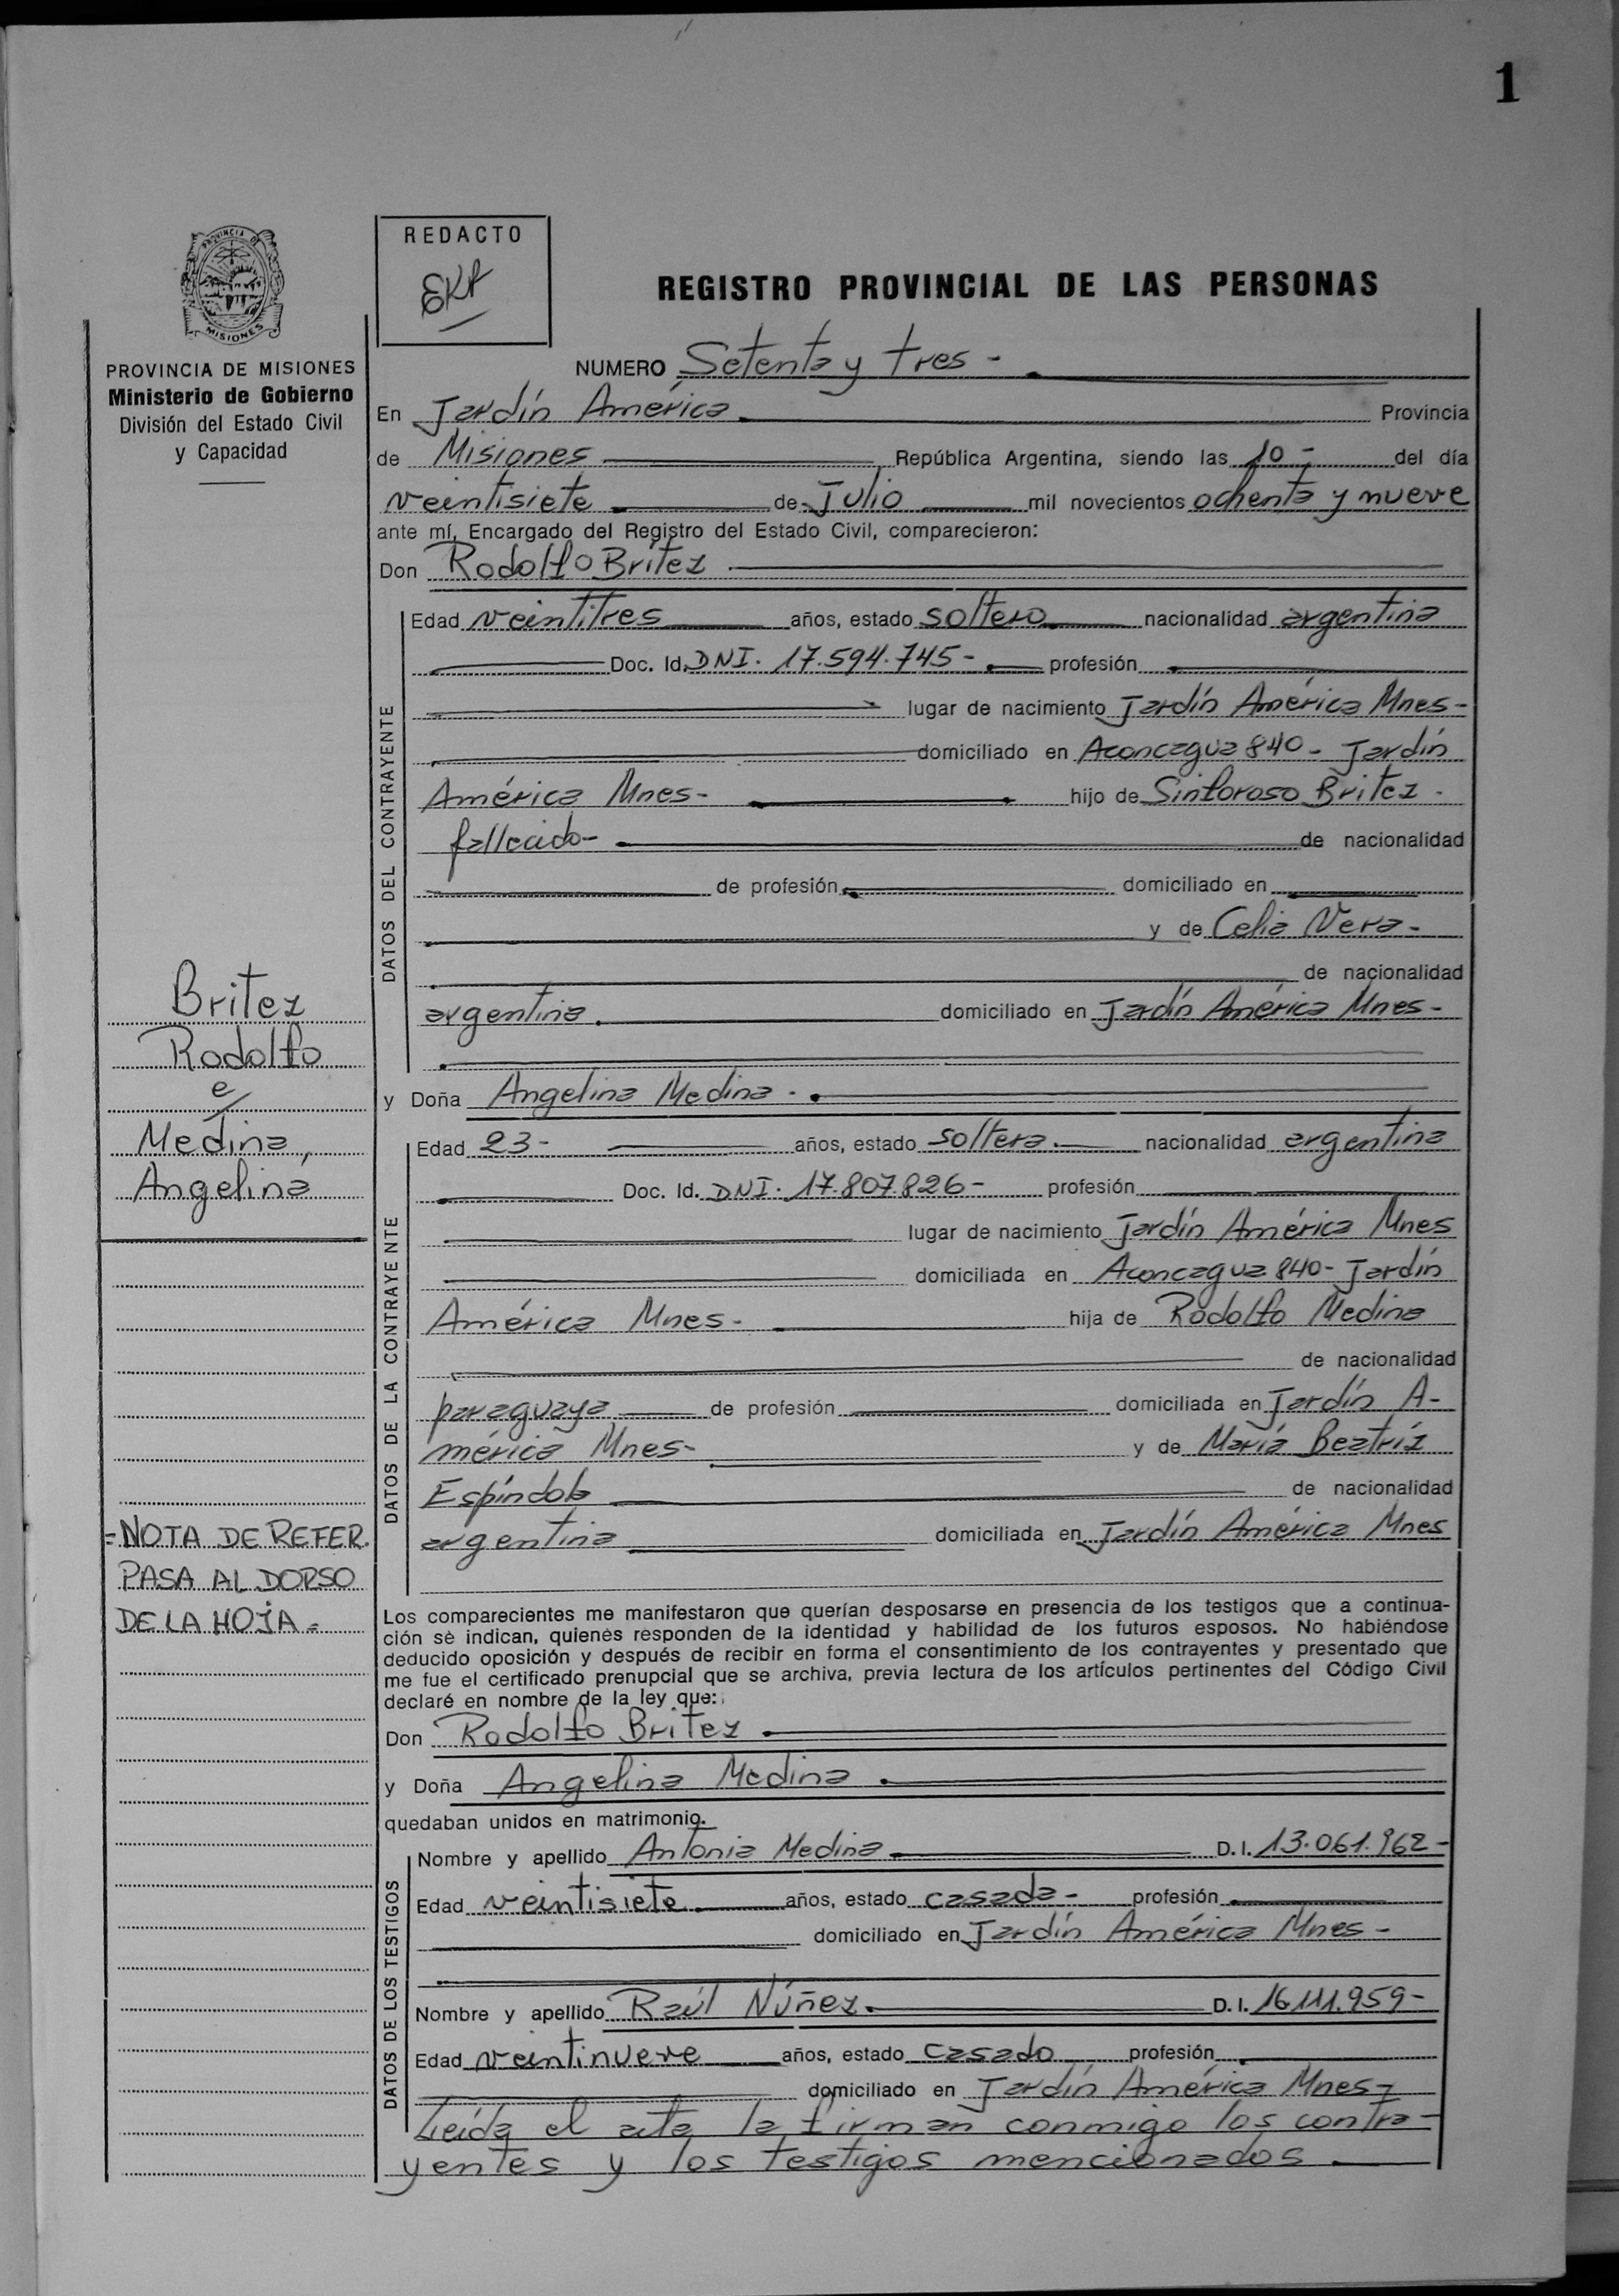 1
PROVINCIA DE
MISIONES
PROVINCIA DE MISIONES
Ministerio de Gobierno
División del Estado Civil
y Capacidad
Britez
Rodolfo
e/
Medina,
Angelina
=NOTA DE REFER.
PASA AL DORSO
DE LA HOJA =
REDACTO
REGISTRO PROVINCIAL DE LAS PERSONAS
NUMERO Setenta y tres -
En Jardín América Provincia
de Misiones República Argentina, siendo las 10 - del día
veintisiete de Julio mil novecientos ochenta y nueve
ante mí, Encargado del Registro del Estado Civil, comparecieron:
Don Rodolfo Britez
DATOS DEL CONTRAYENTE
Edad veintitres años, estado soltero nacionalidad argentina
Doc. Id. DNI. 17.594.745- profesión
lugar de nacimiento Jardín América Mnes-
domiciliado en Aconcagua 840- Jardín
América Mnes- hijo de Sinforoso Britez -
fallecido- de nacionalidad
de profesión domiciliado en
y de Celia Vera-
de nacionalidad
argentina domiciliado en Jardín América Mnes-
y Doña Angelina Medina -
DATOS DE LA CONTRAYENTE
Edad 23- años, estado soltera nacionalidad argentina
Doc. Id. DNI. 17.807.826- profesión
lugar de nacimiento Jardín América Mnes
domiciliada en Aconcagua 840- Jardín
América Mnes- hija de Rodolfo Medina
de nacionalidad
paraguaya de profesión domiciliada en Jardín A-
mérica Mnes- y de María Beatríz
Espíndola de nacionalidad
argentina domiciliada en Jardín América Mnes
Los comparecientes me manifestaron que querían desposarse en presencia de los testigos que a continua-
ción sè indican, quienes responden de la identidad y habilidad de los futuros esposos. No habiéndose
deducido oposición y después de recibir en forma el consentimiento de los contrayentes y presentado que
me fue el certificado prenupcial que se archiva, previa lectura de los artículos pertinentes del Código Civil
declaré en nombre de la ley que:
Don Rodolfo Britez
y Doña Angelina Medina
quedaban unidos en matrimonio.
DATOS DE LOS TESTIGOS
Nombre y apellido Antonia Medina D. I. 13.061.962-
Edad veintisiete años, estado casada- profesión
domiciliado en Jardín América Mnes-
Nombre y apellido Raúl Núñez D. I. 16.111.959-
Edad veintinueve años, estado casado profesión
domiciliado en Jardín América Mnes-
Leída el acta la firman conmigo los contra-
yentes y los testigos mencionados